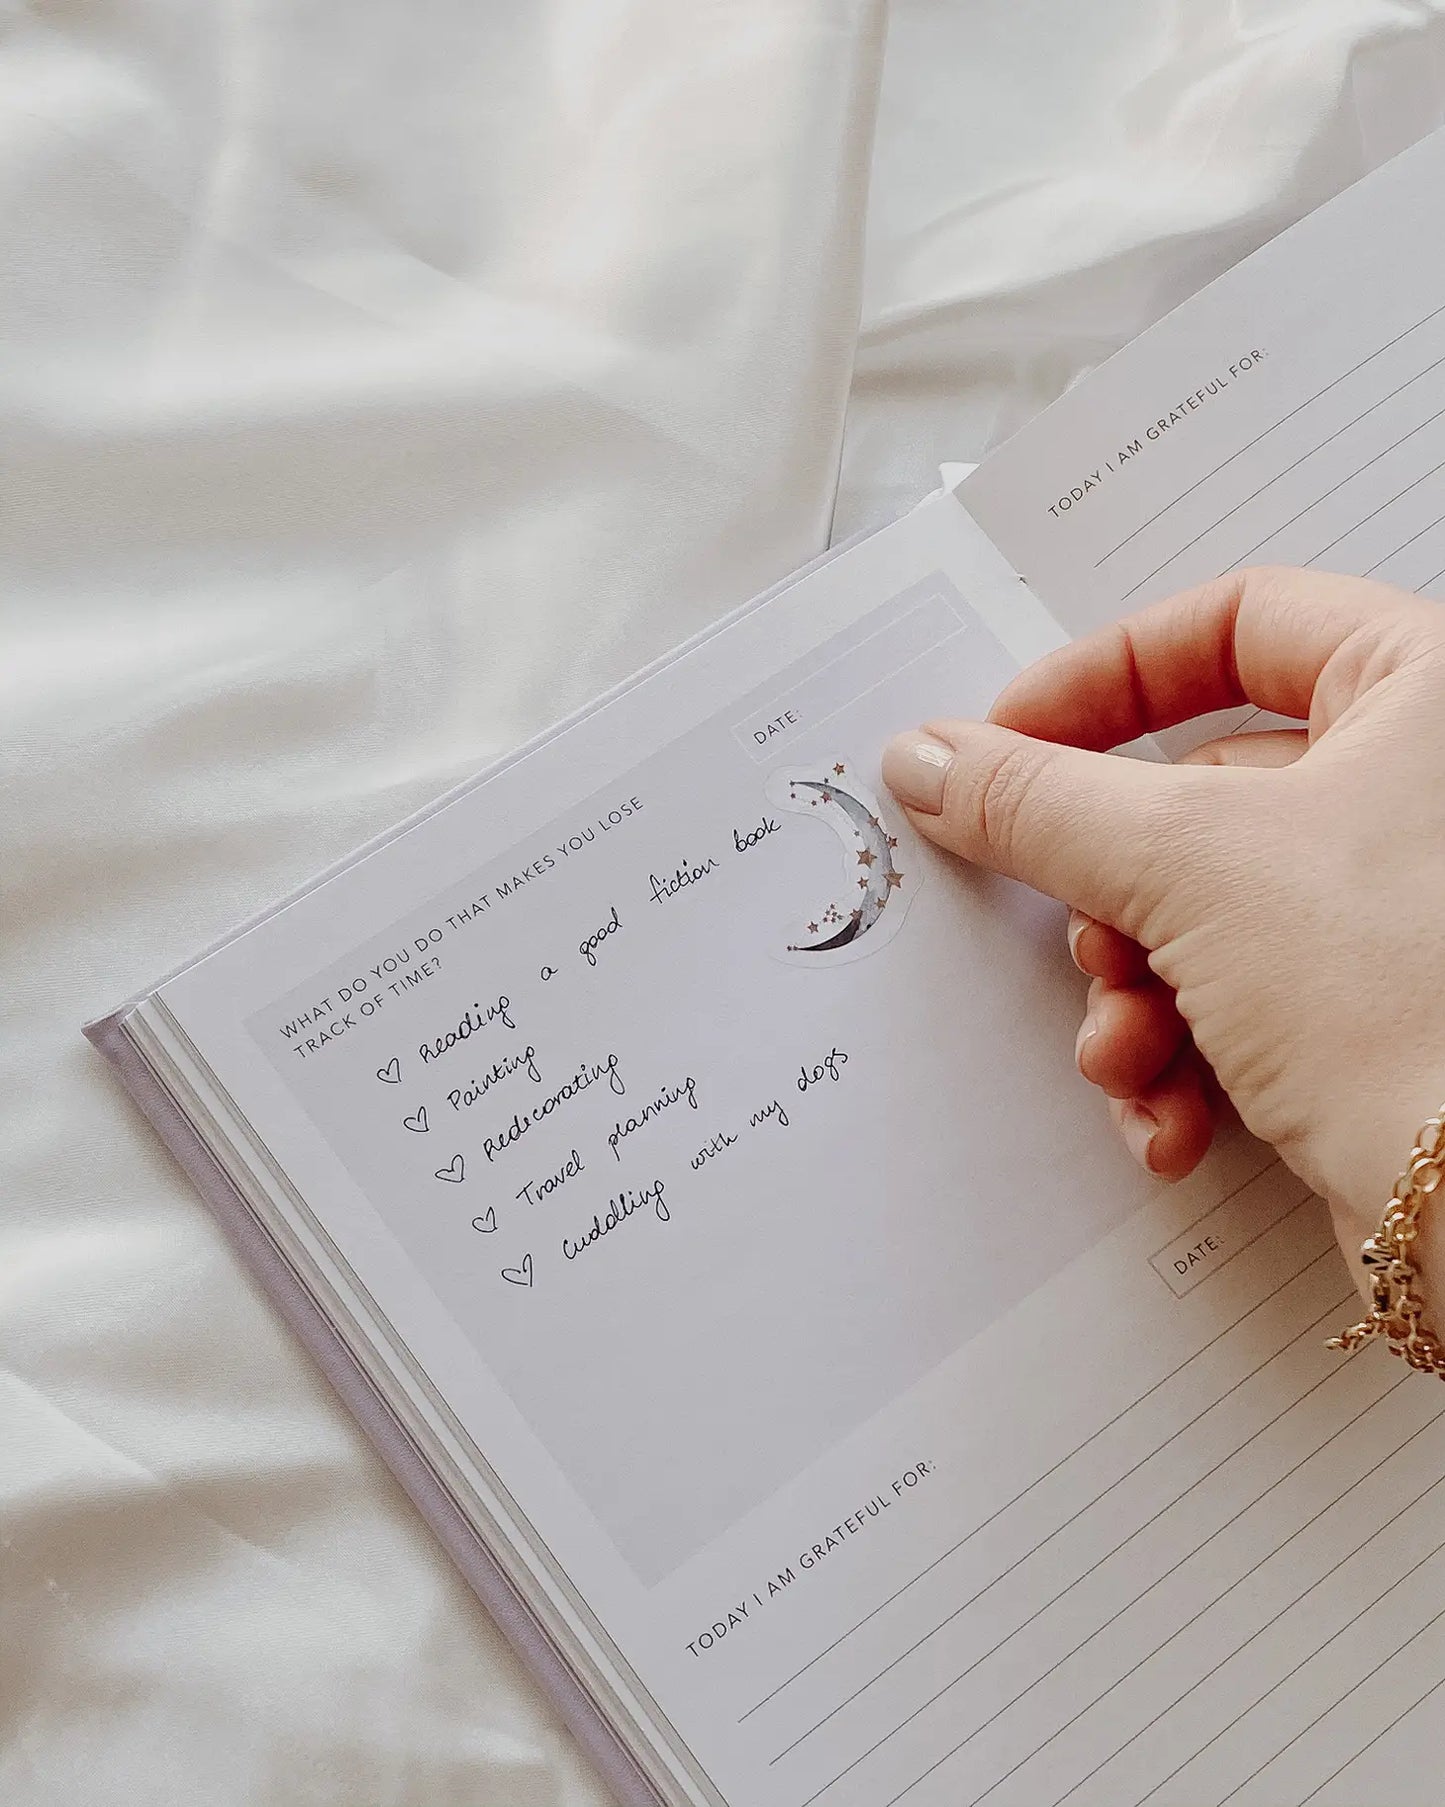 DATE:
WHAT DO YOU DO THAT MAKES YOU LOSE
TRACK OF TIME?
Reading a good fiction book
Painting
Redecorating
Travel planning
Cuddling with my dogs
TODAY I AM GRATEFUL FOR:
DATE:
TODAY I AM GRATEFUL FOR: